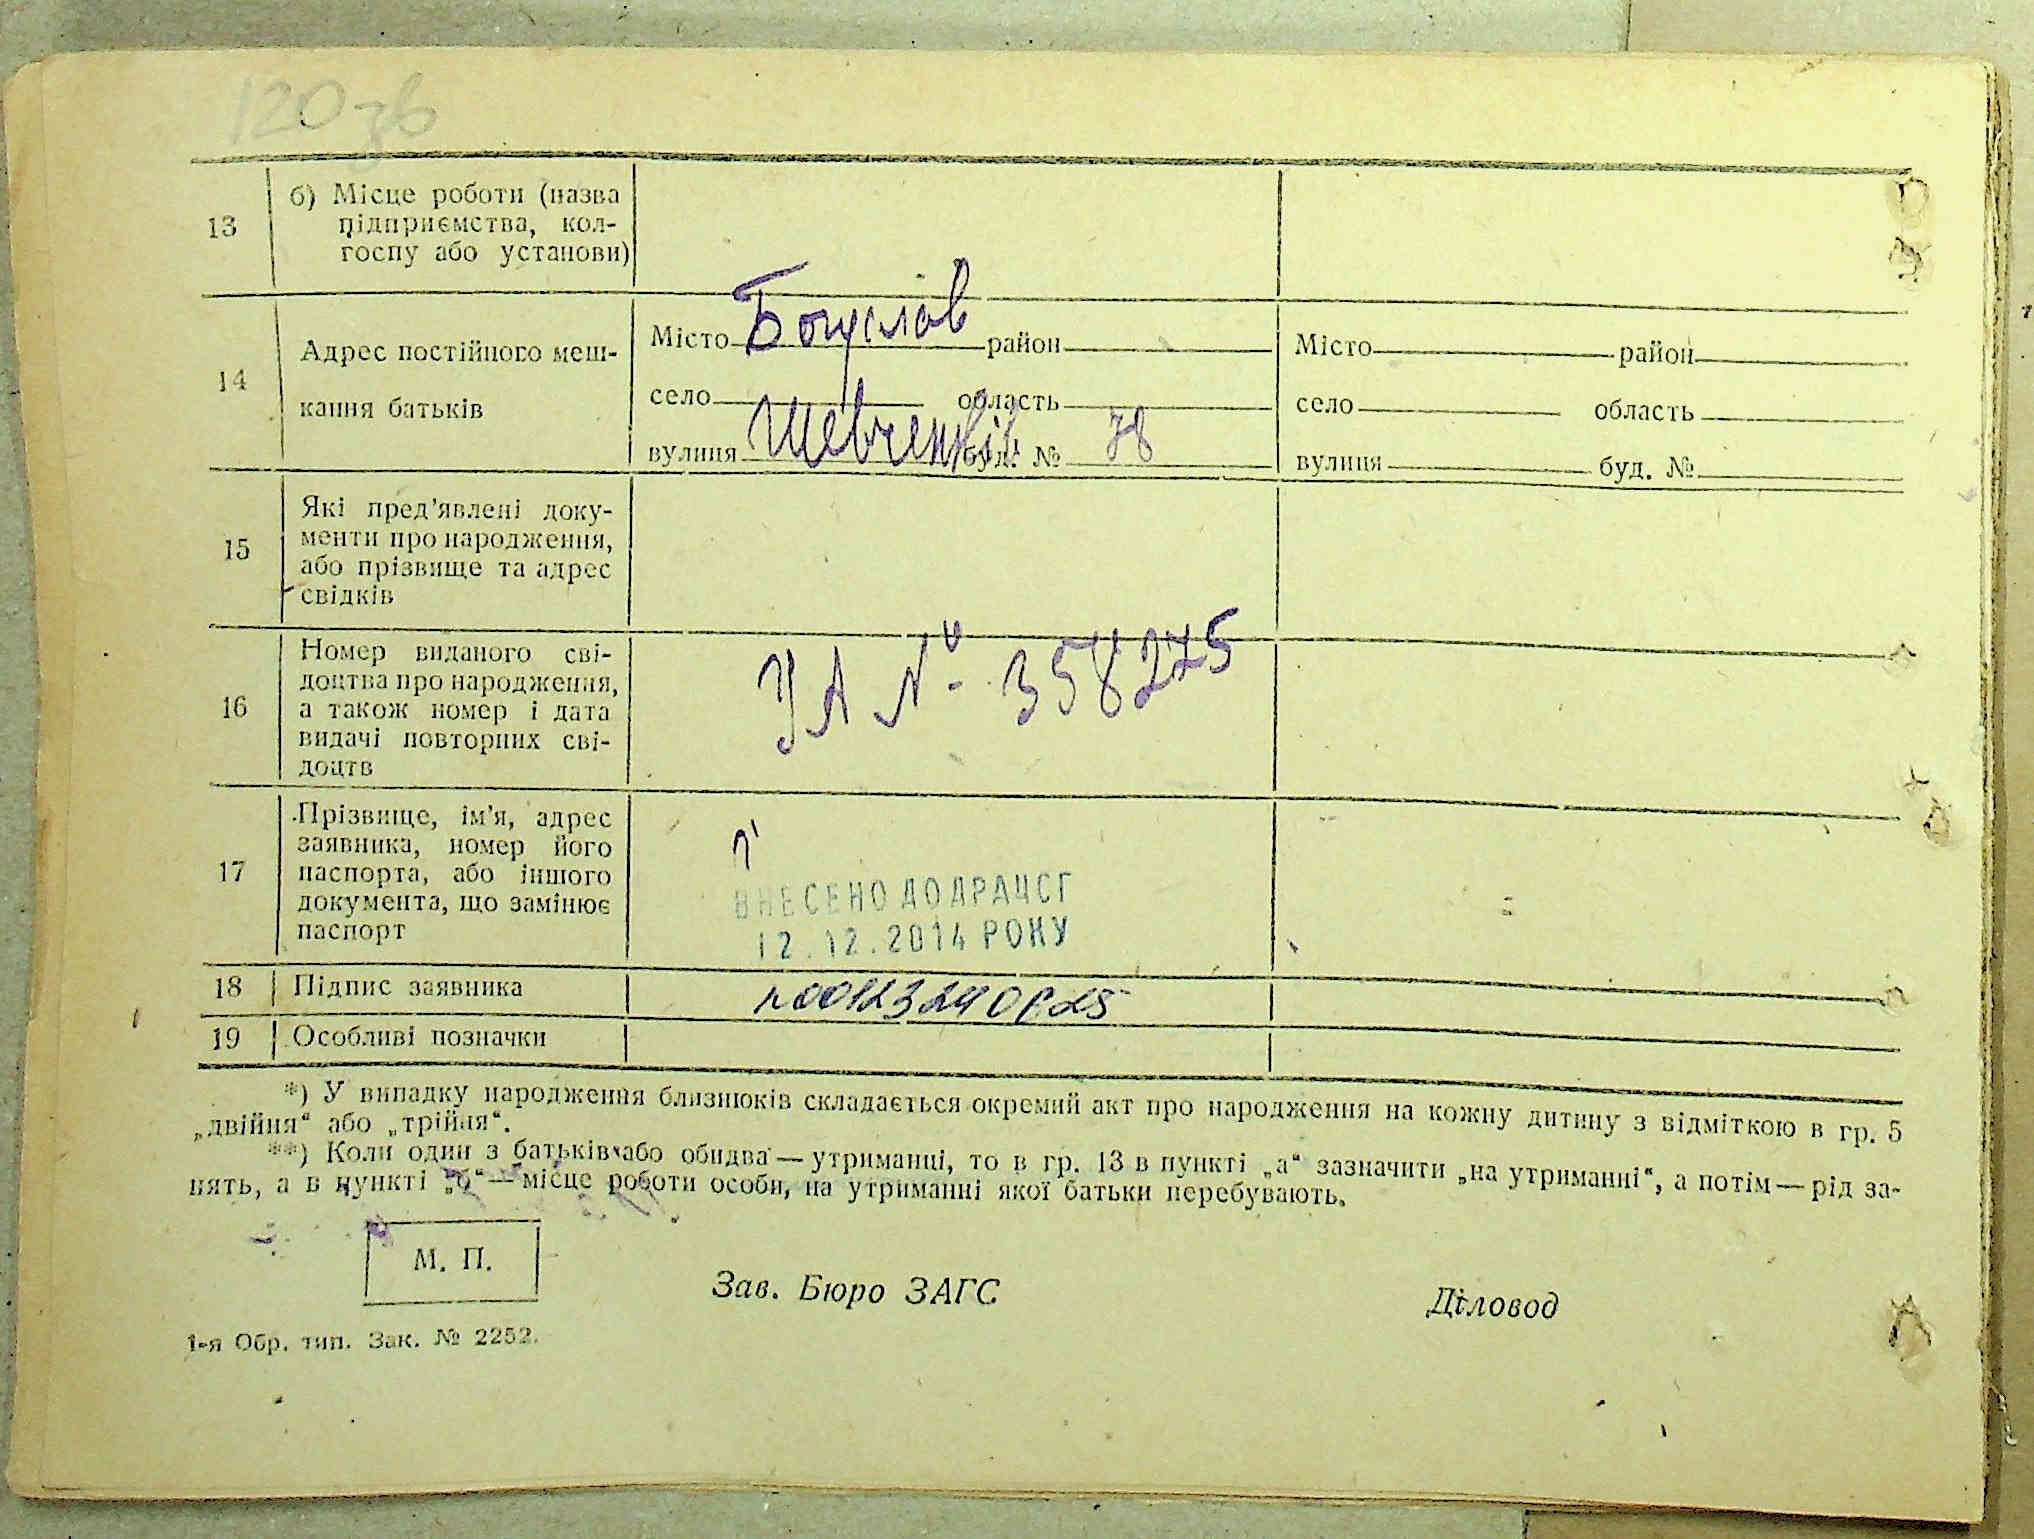 120 зв
13 б) Місце роботи (назва
підприємства, кол-
госпу або установи)
14 Адрес постійного меш-
кання батьків
Місто Богуслав район
село область
вулиця Шевченків буд. № 78
Місто район
село область
вулиця буд. №
15 Які пред'явлені доку-
менти про народження,
або прізвище та адрес
свідків
16 Номер виданого сві-
доцтва про народження,
а також номер і дата
видачі повторних сві-
доцтв
УА № 358275
17 Прізвище, ім'я, адрес
заявника, номер його
паспорта, або іншого
документа, що замінює
паспорт
ВНЕСЕНО ДО ДРАЦСГ
12.12.2014 РОКУ
18 Підпис заявника
19 Особливі позначки
*) У випадку народження близнюків складається окремий акт про народження на кожну дитину з відміткою в гр. 5
„двійня“ або „трійня“.
**) Коли один з батьків або обидва — утриманці, то в гр. 13 в пункті „а“ зазначити „на утриманні“, а потім — рід за-
нять, а в пункті „б“ — місце роботи особи, на утриманні якої батьки перебувають.
М. П.
Зав. Бюро ЗАГС
Діловод
1-я Обр. тип. Зак. № 2252.